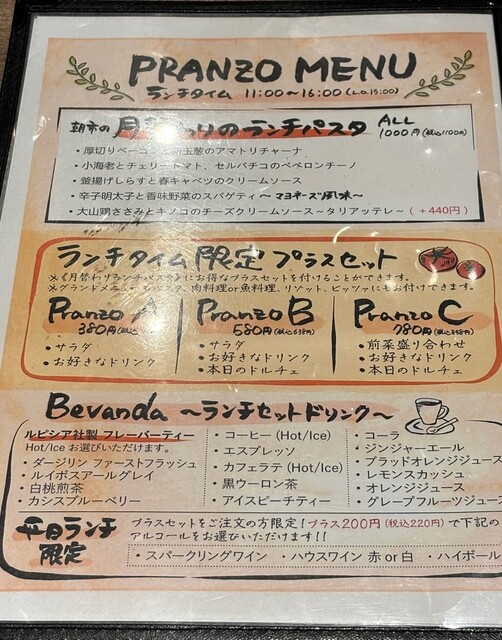 PRANZO MENU
ランチタイム 11:00〜16:00(L.O.15:00)
朝市の 月替わりのランチパスタ ALL 1000円(税込1100円)
・厚切りベーコンと新玉葱のアマトリチャーナ
・小海老とチェリートマト、セルバチコのペペロンチーノ
・釜揚げしらすと春キャベツのクリームソース
・辛子明太子と香味野菜のスパゲティ 〜マヨネーズ風味〜
・大山鶏ささみとキノコのチーズクリームソース〜タリアッテレ〜(+440円)
ランチタイム 限定 プラスセット
※《月替わりランチパスタ》にお得なプラスセットを付けることができます。
※グランドメニューのパスタ、肉料理or魚料理、リゾット、ピッツァにもお付けできます。
Pranzo A
380円(税込
・サラダ
・お好きなドリンク
Pranzo B
580円(税込638円)
・サラダ
・お好きなドリンク
・本日のドルチェ
Pranzo C
780円(税込858円)
・前菜盛り合わせ
・お好きなドリンク
・本日のドルチェ
Bevanda 〜ランチセットドリンク〜
ルピシア社製 フレーバーティー
Hot/Ice お選びいただけます。
・ダージリン ファーストフラッシュ
・ルイボスアールグレイ
・白桃煎茶
・カシスブルーベリー
・コーヒー(Hot/Ice)
・エスプレッソ
・カフェラテ(Hot/Ice)
・黒ウーロン茶
・アイスピーチティー
・コーラ
・ジンジャーエール
・ブラッドオレンジジュース
・レモンスカッシュ
・オレンジジュース
・グレープフルーツジュース
平日ランチ限定
プラスセットをご注文の方限定!プラス200円(税込220円)で下記の
アルコールをお選びいただけます!!
・スパークリングワイン ・ハウスワイン 赤or白 ・ハイボール